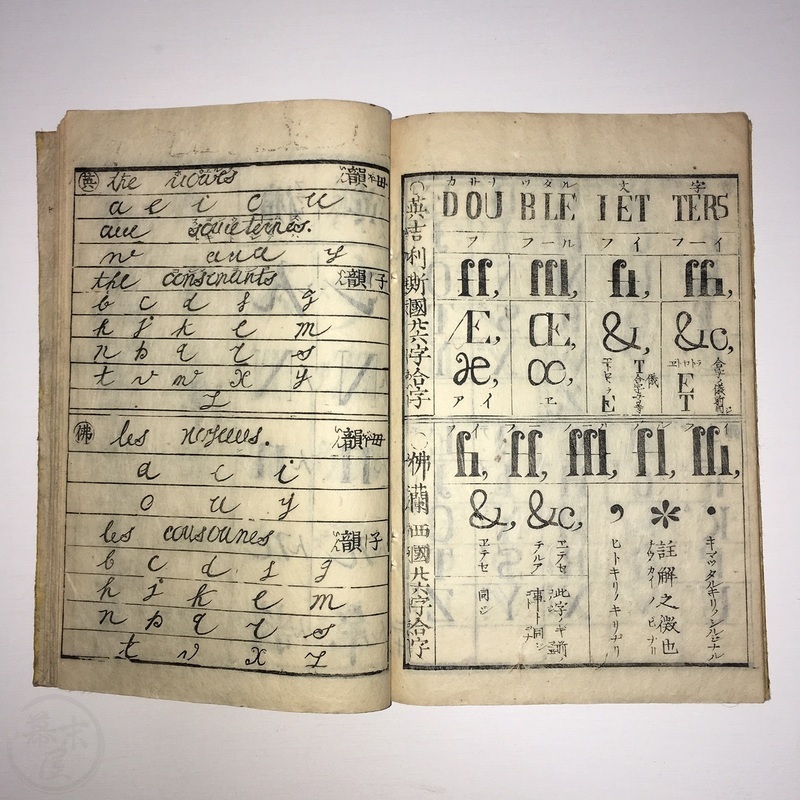 英 the uours 韻母
a e i o u
aue souetemes.
w aua y
the consonants 韻子
b c d f g
h j k l m
n p q r s
t v w x y
z
佛 les voyeues. 韻母
a e i
o u y
les cousounes 韻子
b c d f g
h j k l m
n p q r s
t v x z
○英吉利斯國廿六字合字
カサナ ツタル 文 字
DOUBLE IETTERS
フ フール フイ フーイ
ff, ffl, fi, ffi,
Æ, Œ, &, &c,
æ, œ,
アイ ヱ
E T
○佛瀾西國廿六字合字
fi, ff, ffl, fl, ffi,
&, &c, , * .
ヱテセ
同シ
ヱテセ
テルア
ヒトキリノキリナリ
註解之徴也
キマツタルキリノシルシナル